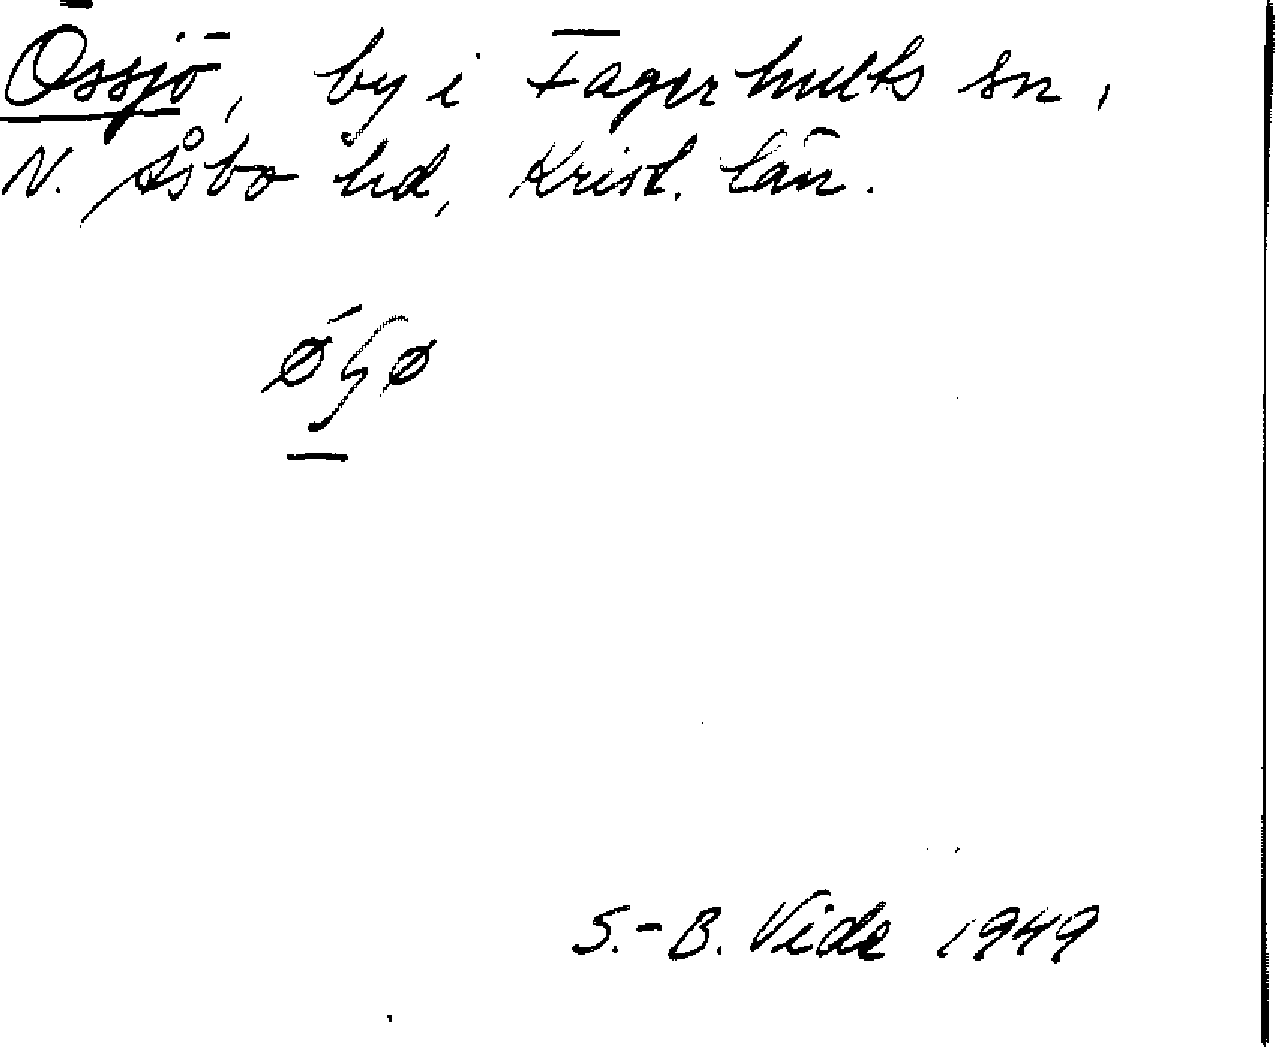 Össjö, by i Fagerhults sn,
N. Åsbo hd, Krist. län.
S.-B. Vide 1949